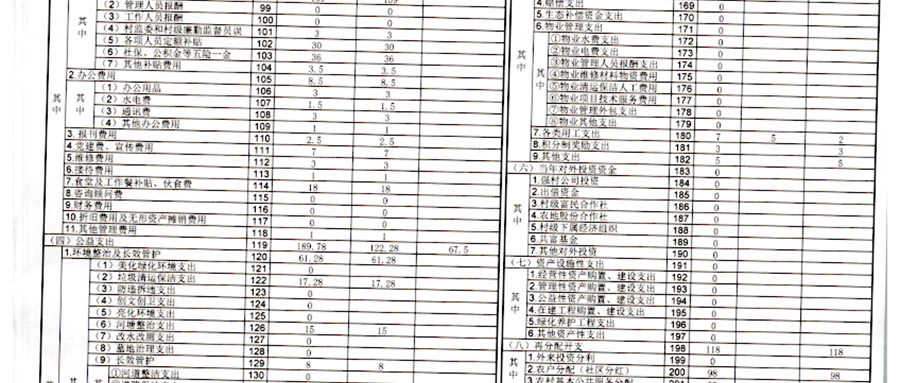 (2)管理人员报酬 99 0
(3)工作人员报酬 100 0
(4)村监委和村级廉勤监督员误 101 3 3
(5)各项人员定额补贴 102 30 30
(6)社保、公积金等五险一金 103 36 36
(7)其他补贴费用 104 3.5 3.5
2.办公费用 105 8.5 8.5
(1)办公用品 106 3 3
(2)水电费 107 1.5 1.5
(3)通讯费 108 3 3
(4)其他办公费用 109 1 1
3.报刊费用 110 2.5 2.5
4.党建费、宣传费用 111 7 7
5.维修费用 112 3 3
6.接待费用 113 1 1
7.食堂及工作餐补贴、伙食费 114 18 18
8.咨询顾问费 115 0
9.财务费用 116 0
10.折旧费用及无形资产摊销费用 117 0
11.其他管理费用 118 1 1
(四)公益支出 119 189.78 122.28 67.5
1.环境整治及长效管护 120 61.28 61.28
(1)美化绿化环境支出 121 0
(2)垃圾清运保洁支出 122 17.28 17.28
(3)防违拆违支出 123 0
(4)创文创卫支出 124 0
(5)亮化环境支出 125 0
(6)河塘整治支出 126 15 15
(7)改水改厕支出 127 0
(8)墓地治理支出 128 0
(9)长效管护 129 8 8
①河道整洁支出 130 0
其中
其中
其中
其中
4.赔偿支出 169 0
5.生态补偿资金支出 170 0
6.物业管理支出 171 0
①物业水费支出 172 0
②物业电费支出 173 0
③物业管理人员报酬支出 174 0
④物业维修材料物资费用 175 0
⑤物业清运保洁人工费用 176 0
⑥物业项目技术服务费用 177 0
⑦物业管理外包支出 178 0
⑧物业其他支出 179 0
7.各类用工支出 180 7 5 2
8.积分制奖励支出 181 3 3
9.其他支出 182 5 5
(六)当年对外投资资金 183 0
1.强村公司投资 184 0
2.出借资金 185 0
3.村级富民合作社 186 0
4.农地股份合作社 187 0
5.村级下属经济组织 188 0
6.共富基金 189 0
7.其他对外投资 190 0
(七)资产设施性支出 191 0
1.经营性资产购置、建设支出 192 0
2.管理性资产购置、建设支出 193 0
3.公益性资产购置、建设支出 194 0
4.在建工程购置、建设支出 195 0
5.绿化养护工程支出 196 0
6.其他资产性支出 197 0
(八)再分配开支 198 118 118
1.外来投资分利 199 0
2.农户分配(社区分红) 200 98 98
3.农村基本公共服务分配
其中
其中
其中
其中